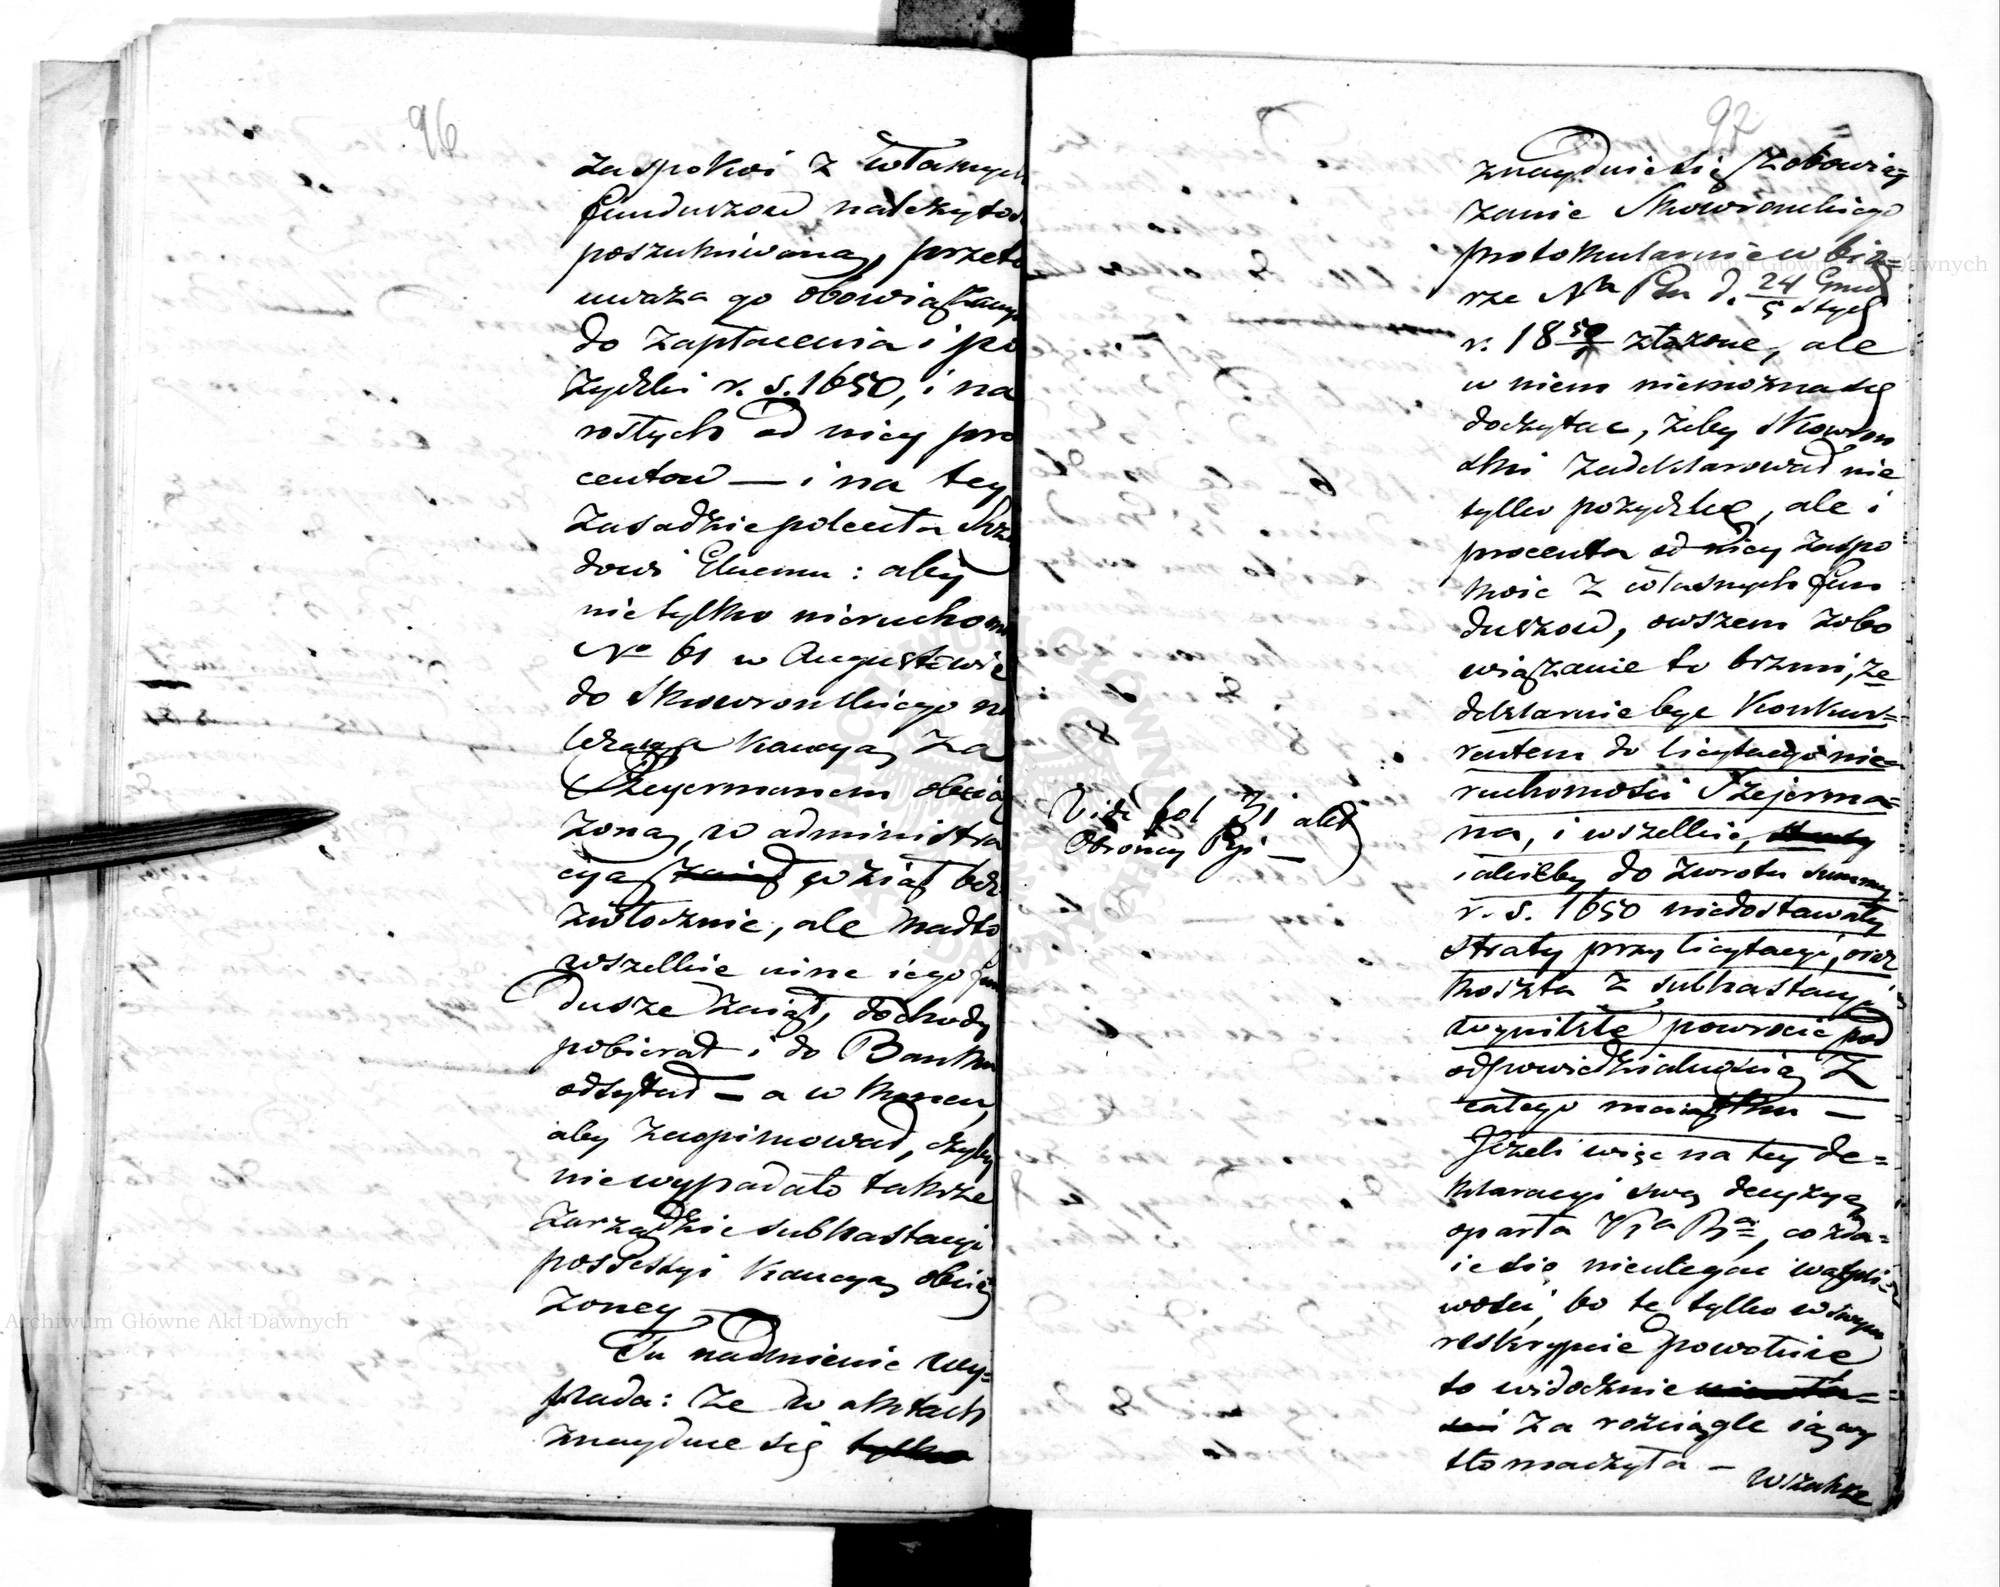 96
zaspokoi z własnych
funduszow należytoś
poszukiwaną, przeto
uważa go obowiązanym
do zapłacenia i po
życzki r. s. 1650, i na
rosłych od niey pro
centow — i na tey
zasadzie poleciła Rzą
dowi Gluemu: aby
nietylko nieruchom
No 61 w Augustowie
do Skowrońskiego na
kaucyą za
Szejermanem obcią
żoną, w administra
cyą zaiął wziął bez
zwłocznie, ale nadto
wszelkie inne iego fun
dusze zaiął, dochody
pobierał i do Banku
odsyłał — a w końcu,
aby zaopiniował, czyby
niewypadało także
zarządzić subhastacyi
possessyi kaucyą obcią
żoney
Tu nadmienić wy=
pada: że w aktach
znayduie się tylko
97
znayduie się zobowią=
zanie Skowrońskiego
protokularnie w biu=
rze Na Pu d. 24 Grud
5 Stycz
r. 18 złożone, ale
w niem niemożna się
doczytać, żeby Skowroń
ski zadeklarował nie
tylko pożyczkę, ale i
procenta od niey zaspo
koić z własnych fun
duszow, owszem zobo
wiązanie to brzmi, że
deklaruie być Konkur=
rentem do licytacyi nie=
ruchomości Szejerma=
na, i wszelkie, straty
iakieby do zwrotu summy
r. s. 1650 niedostawały
straty przy licytacyi, oraz
koszta z subhastacyi
wynikłe powrócić pod
odpowiedzialnością z
całego maiątku —
Jeżeli więc na tey de=
klaracyi swą decyzyą
oparła Kia Ba, co zda=
ie się nieulegać wątpli=
wości, bo te tylko w swym
reskrypcie powołuie
to widocznie
za rozciągle ią wy
tłomaczyła —
Wszakże
Vide fol 31 akt
Obrońcy Pgi —
Archiwum Główne Akt Dawnych
Archiwum Główne Akt Dawnych